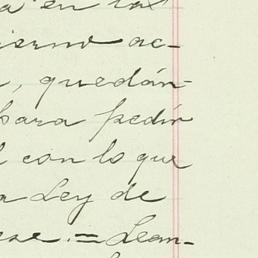 a en las
ierno ac-
, quedán-
para pedir
l con lo que
a Ley de
ese.= Lean-